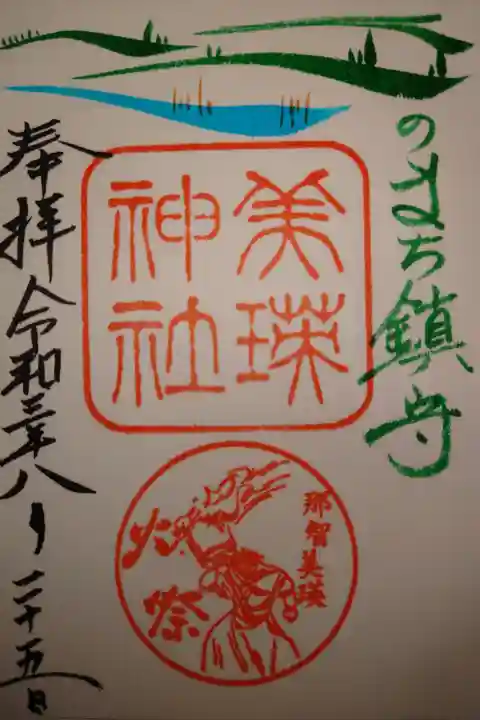 のまち鎮守
美瑛
神社
那智美瑛
火祭
奉拝令和三年八月二十五日